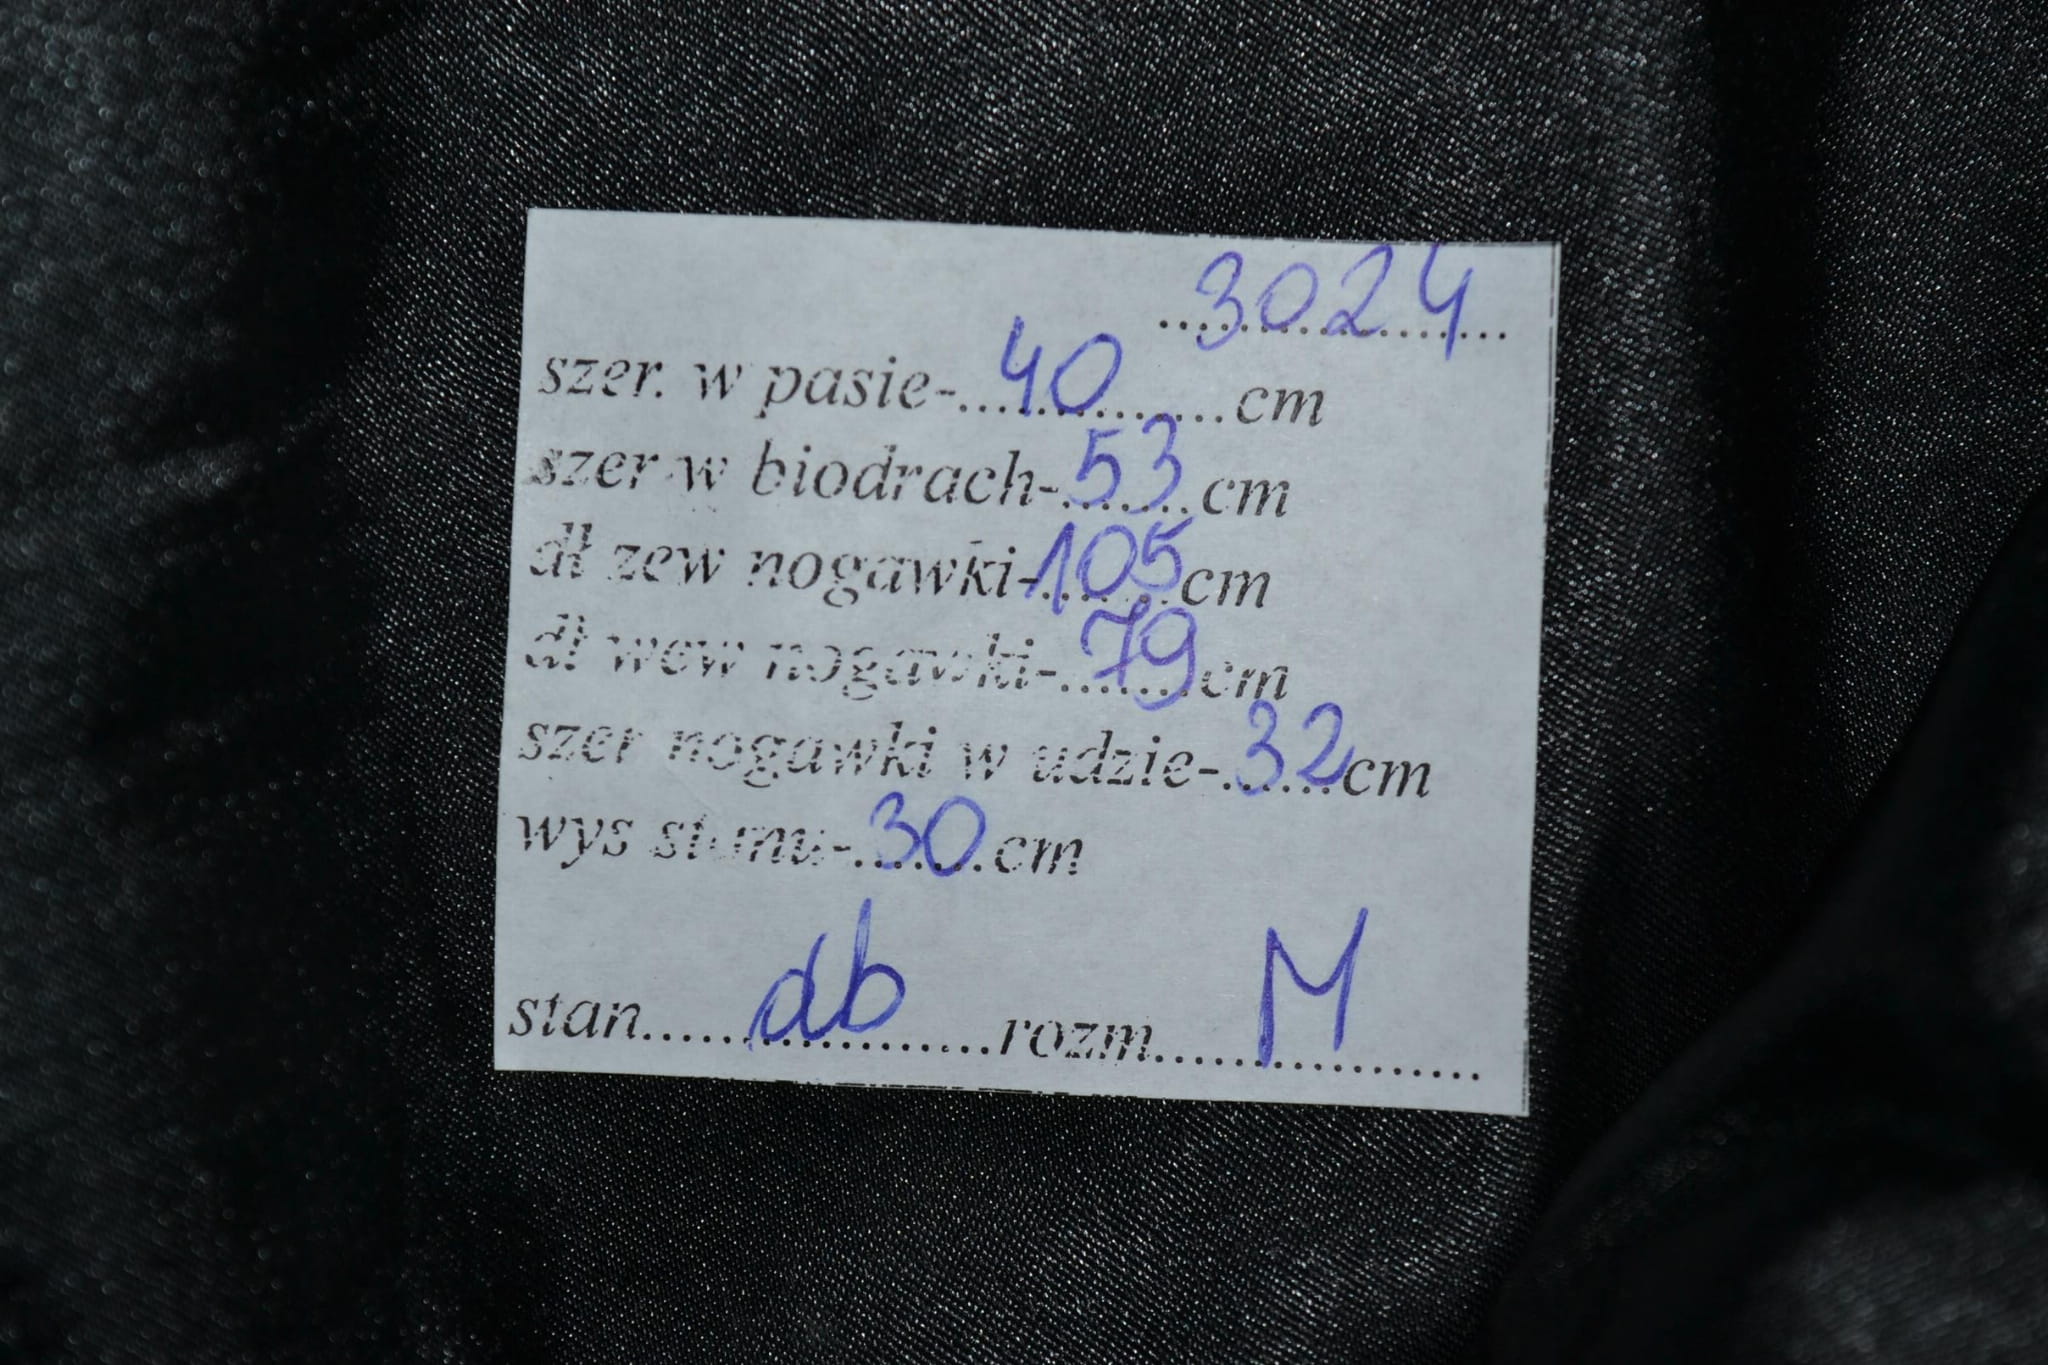 3024
szer. w pasie-40cm
szer w biodrach-53cm
dł zew nogawki-105cm
dł wew nogawki-79cm
szer nogawki w udzie-32cm
wys stanu-30cm
stan......db......rozm......M......